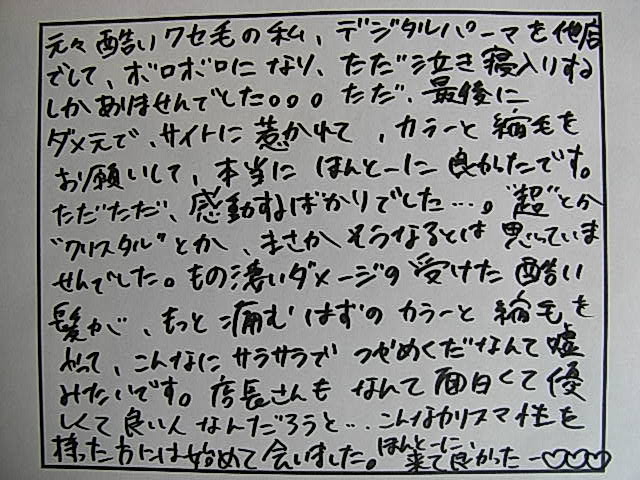 元々酷いクセ毛の私、デジタルパーマを他店
でして、ボロボロになり、ただ泣き寝入りする
しかありませんでした。。。ただ、最後に
ダメ元で、サイトに惹かれて、カラーと縮毛を
お願いして、本当にほんとーに良かったです。
ただただ、感動するばかりでした…。"超"とか
"クリスタル"とか、まさかそうなるとは思っていま
せんでした。もの凄いダメージの受けた酷い
髪が、もっと痛むはずのカラーと縮毛を
やって、こんなにサラサラでつやめくだなんて嘘
みたいです。店長さんもなんて面白くて優
しくて良い人なんだろうと…こんなカリスマ性を
持った方には始めて会いました。ほんとーに、
来て良かったー♡♡♡